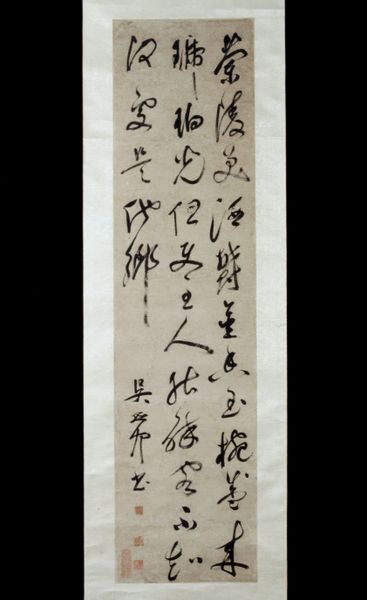 蘭陵美酒鬱金香玉椀盛來
琥珀光但使主人能醉客不知
何處是他鄉
吳書